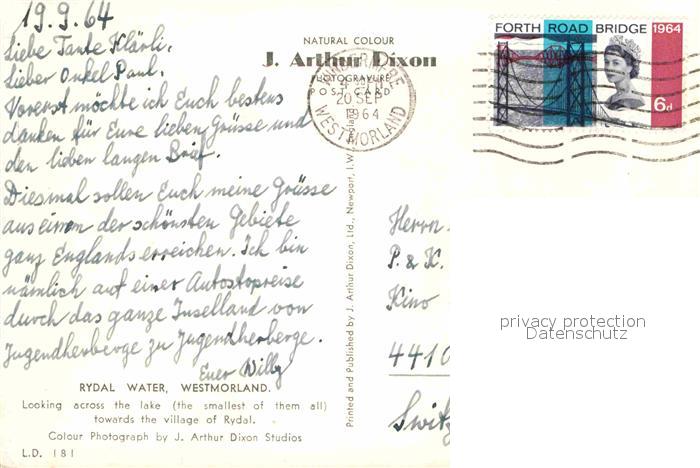 19.9.64
Liebe Tante Klärli,
Lieber Onkel Paul.
Vorerst möchte ich Euch bestens
danken für Eure lieben Grüsse und
den lieben langen Brief.
Diesmal sollen Euch meine Grüsse
aus einem der schönsten Gebiete
ganz Englands erreichen. Ich bin
nämlich auf einer Autostopreise
durch das ganze Inselland von
Jugendherberge zu Jugendherberge.
Euer Willy
RYDAL WATER, WESTMORLAND.
Looking across the lake (the smallest of them all)
towards the village of Rydal.
Colour Photograph by J. Arthur Dixon Studios
L.D. 181
NATURAL COLOUR
J. Arthur Dixon
PHOTOGRAVURE
POST CARD
20 SEP
1964
WESTMORLAND
Printed and Published by J. Arthur Dixon, Ltd., Newport, I.W.
FORTH ROAD BRIDGE 1964
6d
Herrn
P. & K.
Kino
4410
Switz
privacy protection
Datenschutz